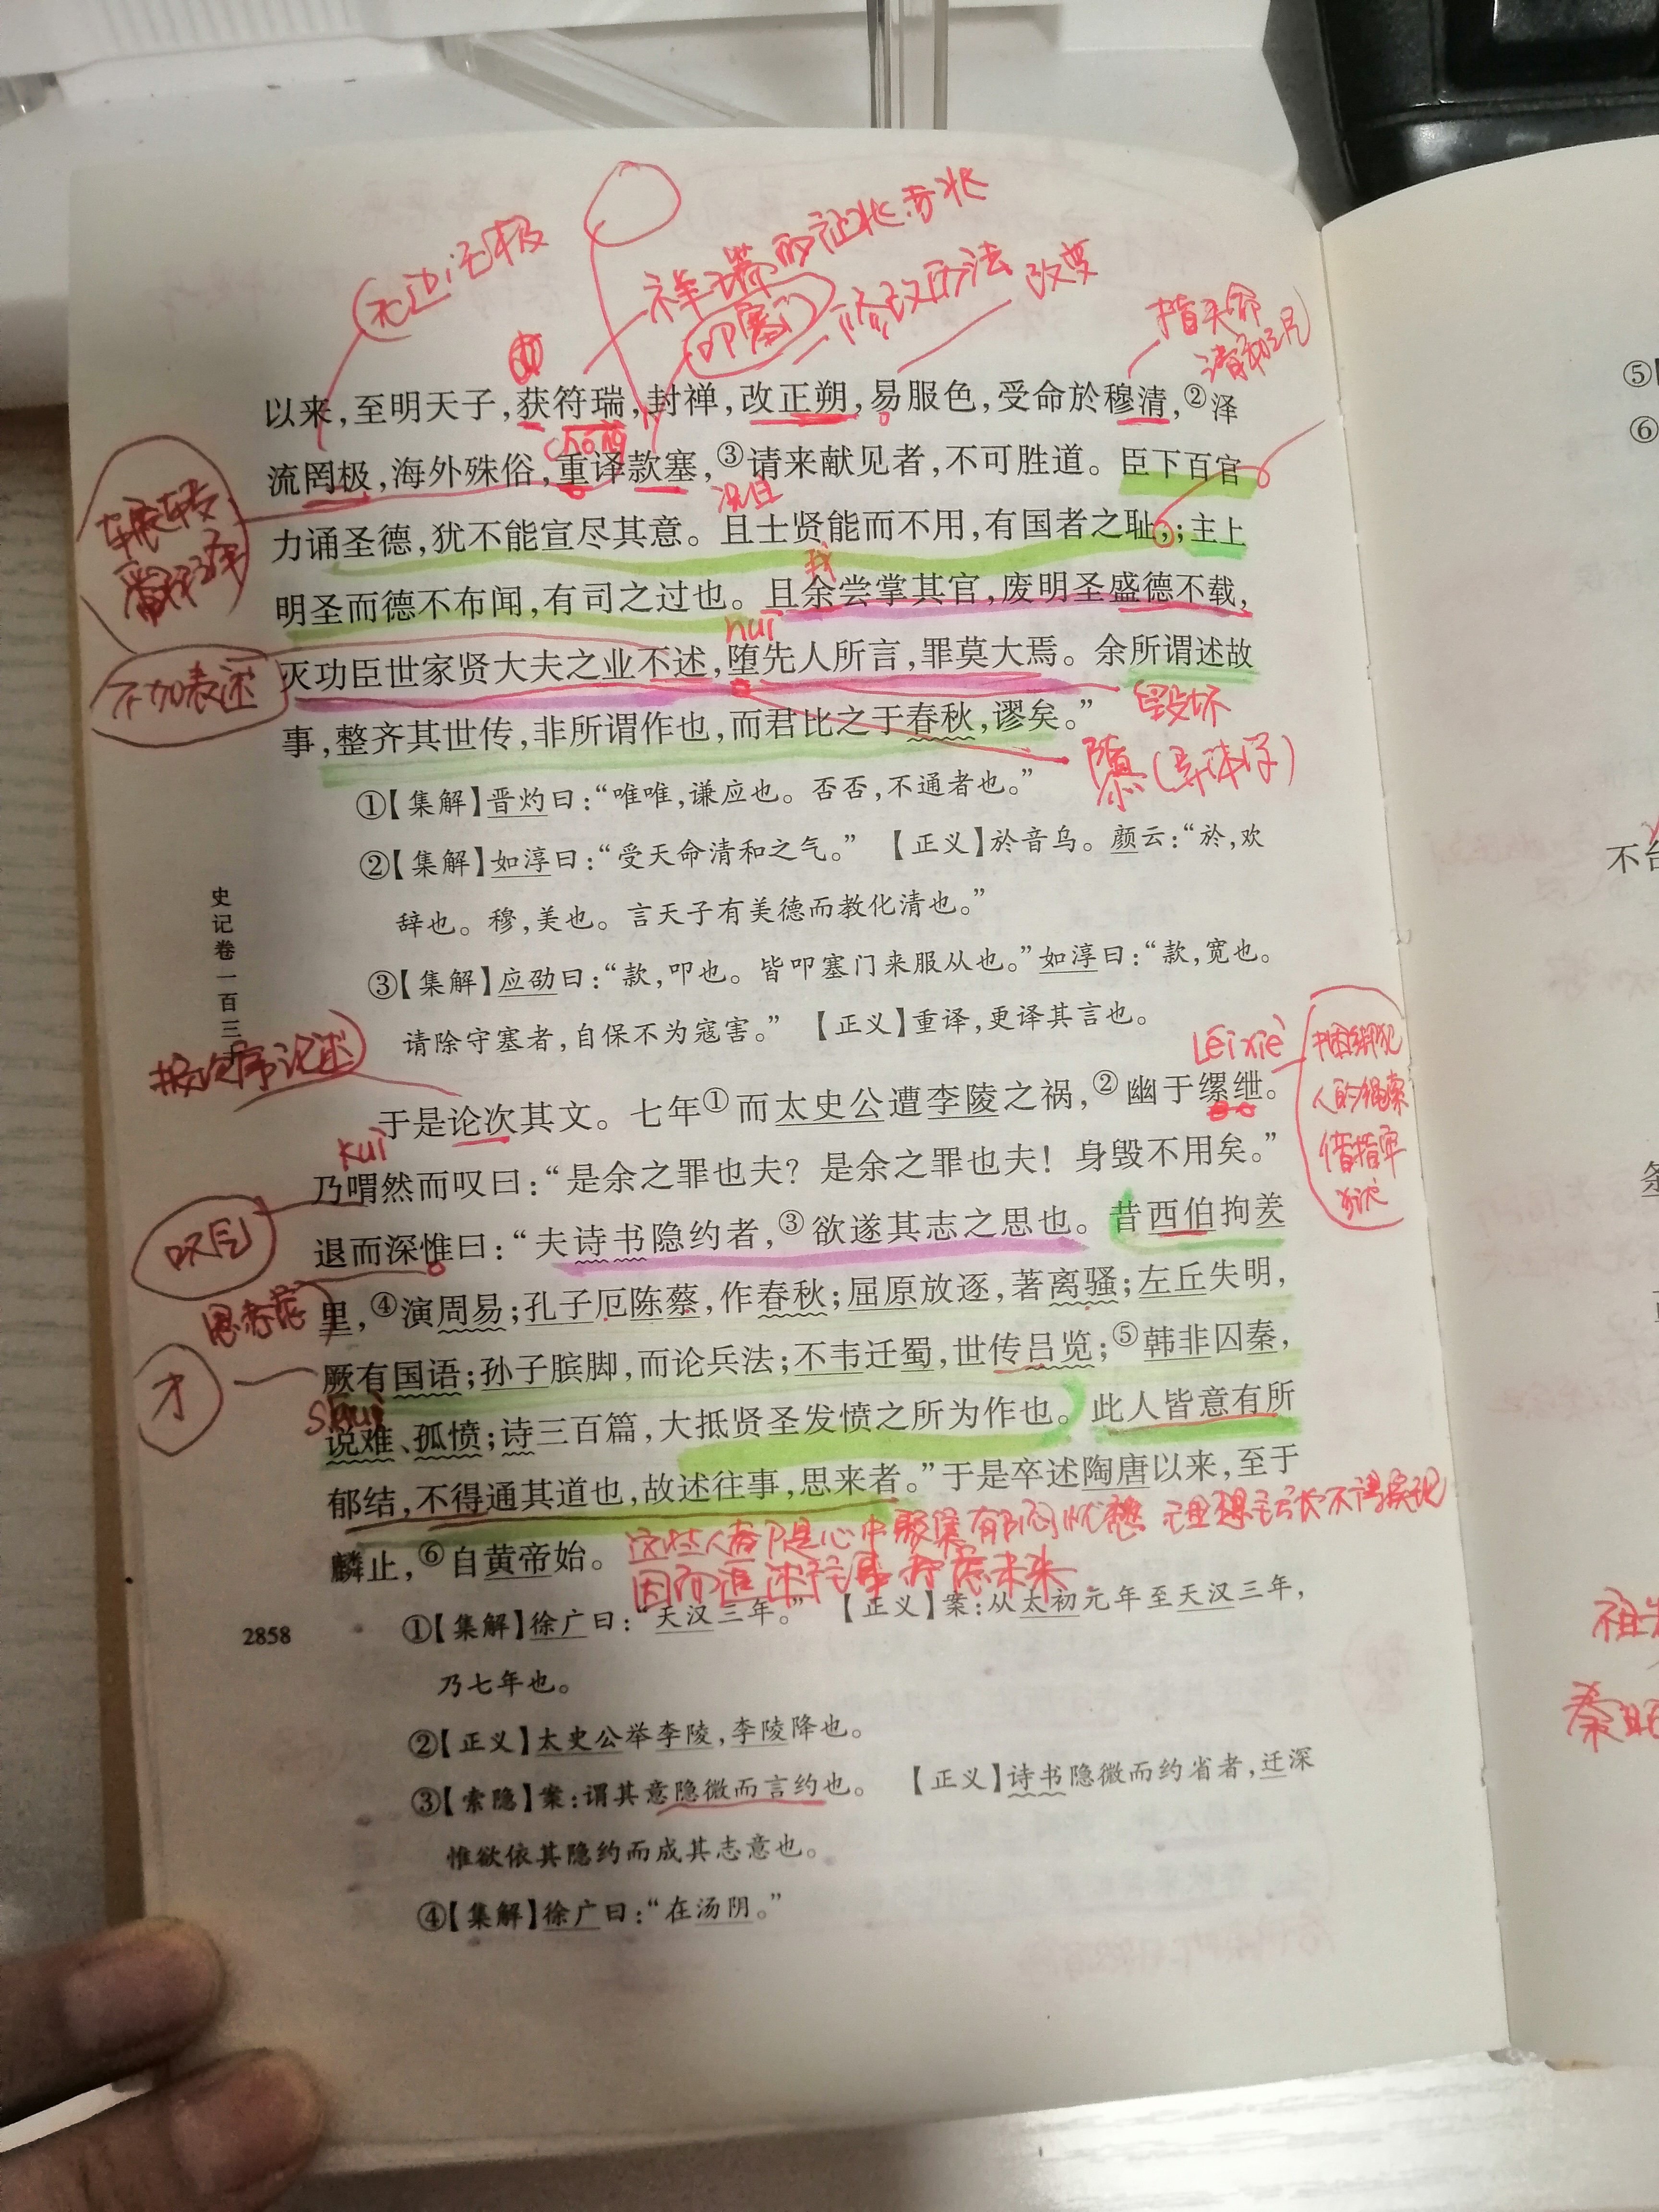 无边无极
祥瑞的征兆、吉兆
叩塞门
修改历法
改变
指天命
清和之气
以来，至明天子，获符瑞，封禅，改正朔，易服色，受命於穆清，②泽
chóng
流罔极，海外殊俗，重译款塞，③请来献见者，不可胜道。臣下百官
辗转
翻译
况且
力诵圣德，犹不能宣尽其意。且士贤能而不用，有国者之耻；主上
我
明圣而德不布闻，有司之过也。且余尝掌其官，废明圣盛德不载，
huī
不加表述
灭功臣世家贤大夫之业不述，堕先人所言，罪莫大焉。余所谓述故
毁坏
事，整齐其世传，非所谓作也，而君比之于春秋，谬矣。”
隳（异体字）
①【集解】晋灼曰：“唯唯，谦应也。否否，不通者也。”
②【集解】如淳曰：“受天命清和之气。” 【正义】於音乌。颜云：“於，欢
辞也。穆，美也。言天子有美德而教化清也。”
③【集解】应劭曰：“款，叩也。皆叩塞门来服从也。”如淳曰：“款，宽也。
请除守塞者，自保不为寇害。” 【正义】重译，更译其言也。
史记卷一百三
按次序论述
Léi xiè
捆绑犯
人的绳索
借指牢
狱
于是论次其文。七年①而太史公遭李陵之祸，②幽于缧绁。
kuì
乃喟然而叹曰：“是余之罪也夫？是余之罪也夫！身毁不用矣。”
叹气
退而深惟曰：“夫诗书隐约者，③欲遂其志之思也。昔西伯拘羑
思考
里，④演周易；孔子厄陈蔡，作春秋；屈原放逐，著离骚；左丘失明，
才
厥有国语；孙子膑脚，而论兵法；不韦迁蜀，世传吕览；⑤韩非囚秦，
shuì
说难、孤愤；诗三百篇，大抵贤圣发愤之所为作也。此人皆意有所
郁结，不得通其道也，故述往事，思来者。”于是卒述陶唐以来，至于
麟止，⑥自黄帝始。
这些人都是心中聚集郁闷忧愁 理想主张不得实现
因而追述往事 考虑未来
①【集解】徐广曰：“天汉三年。” 【正义】案：从太初元年至天汉三年，
2858
乃七年也。
②【正义】太史公举李陵，李陵降也。
③【索隐】案：谓其意隐微而言约也。 【正义】诗书隐微而约省者，迁深
惟欲依其隐约而成其志意也。
④【集解】徐广曰：“在汤阴。”
⑤
⑥